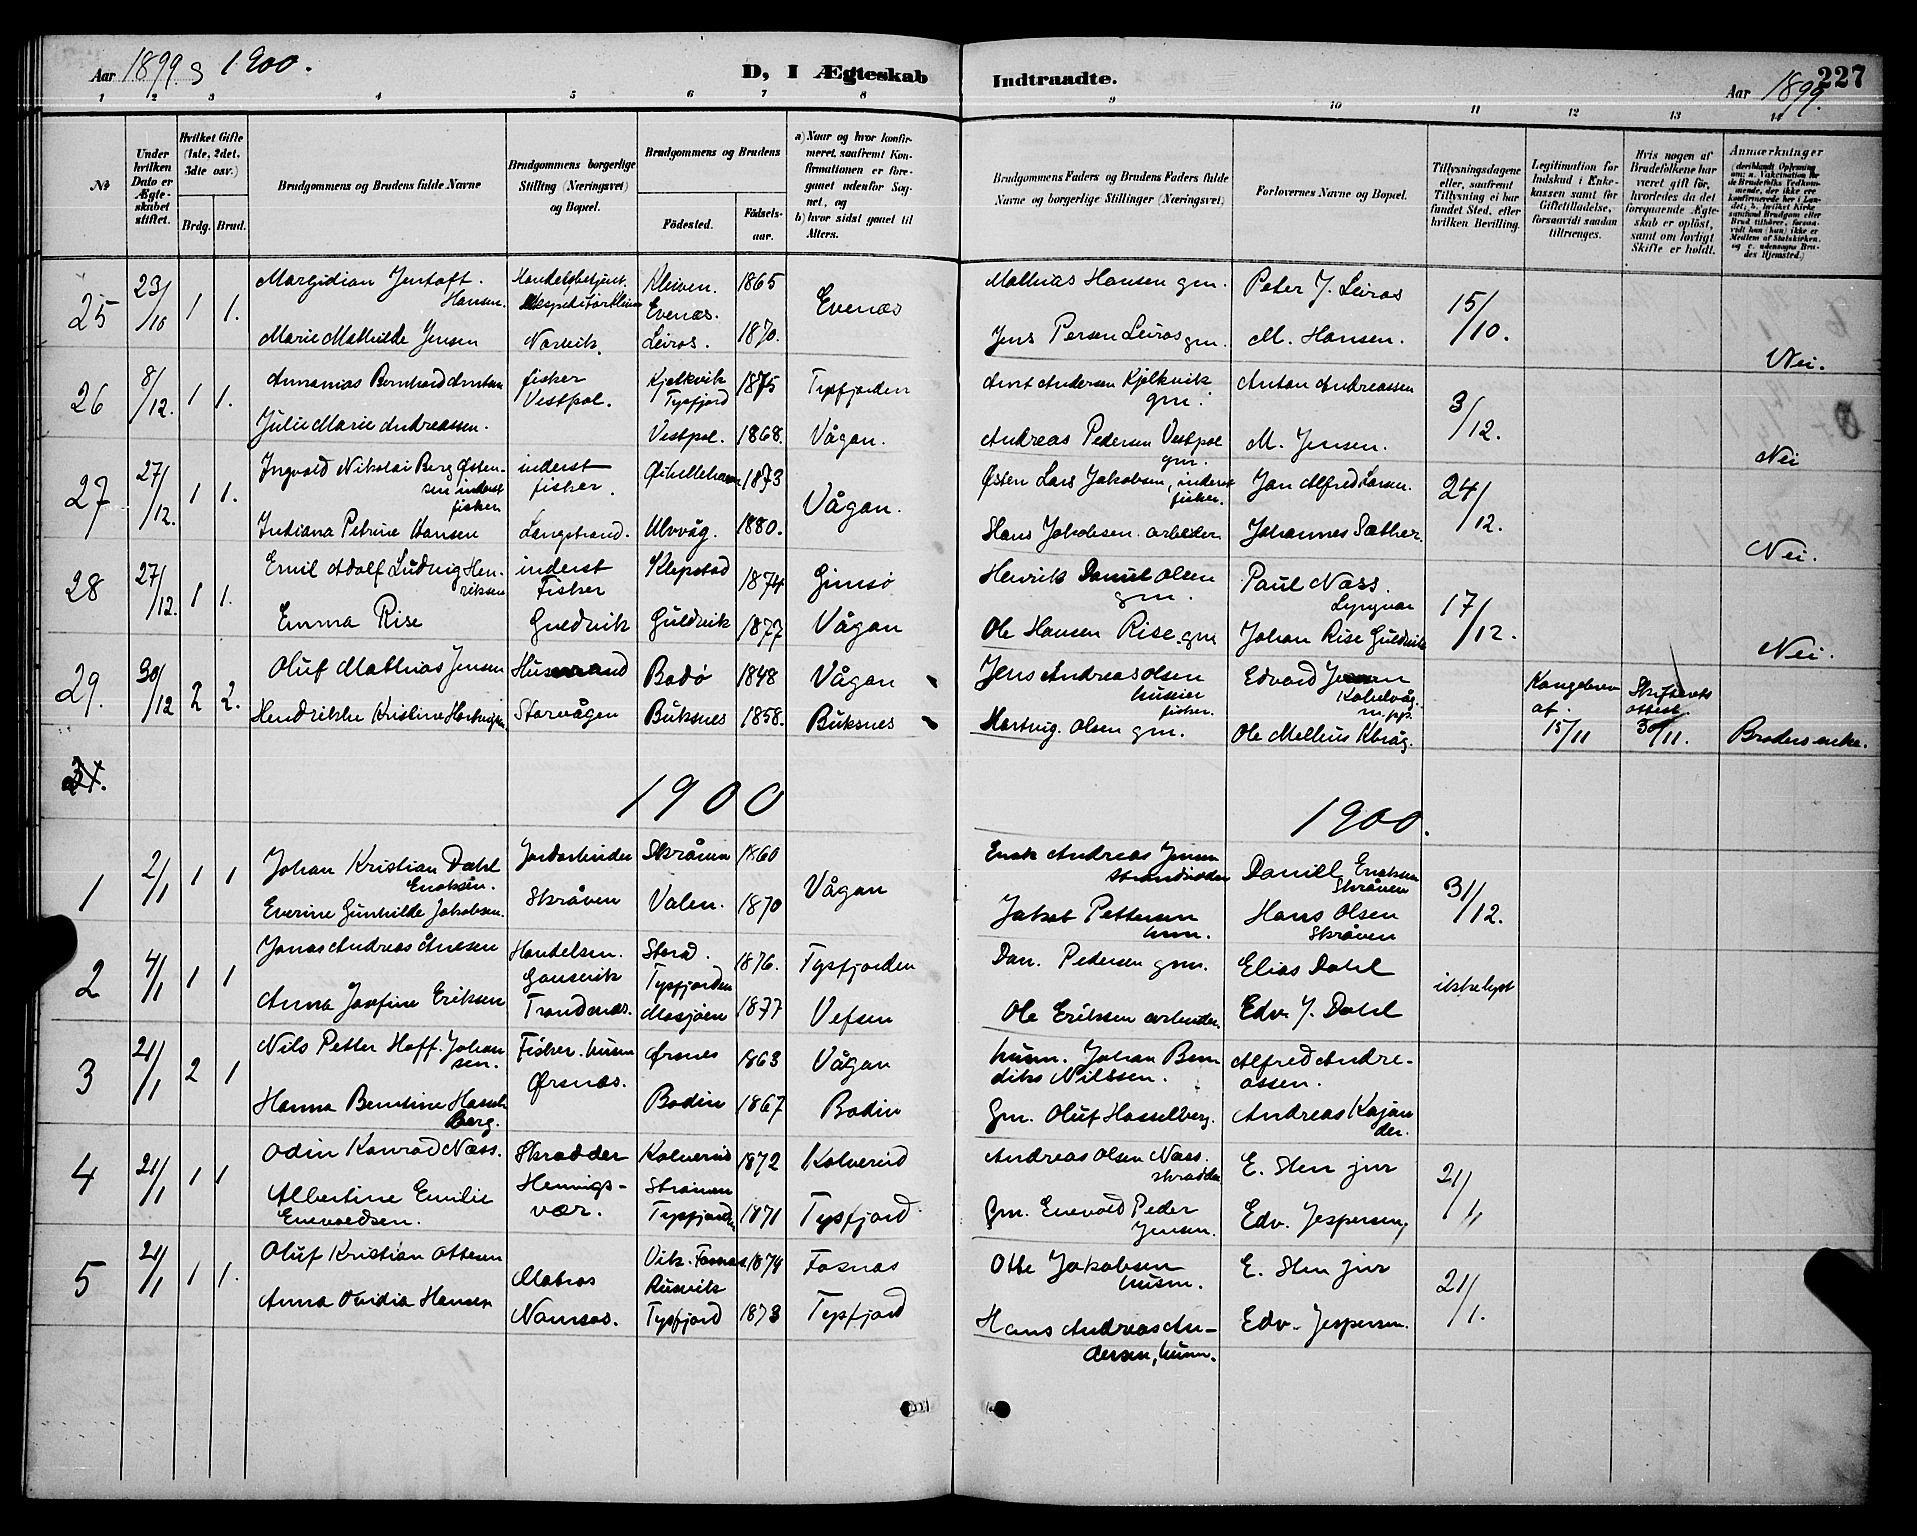 Aar 1899 & 1900.
D, I Ægteskab Indtraadte.
227
Aar 1899.
1 2 3 4 5 6 7 8 9 10 11 12 13 14
№
Under hvilken Dato er Ægteskabet stiftet.
Hvilket Gifte (1ste, 2det, 3die osv.)
Brdg. Brud.
Brudgommens og Brudens fulde Navne
Brudgommens borgerlige Stilling (Næringsvei) og Bopæl.
Brudgommens og Brudens
Födested.
Födselsaar.
a) Naar og hvor konfirmeret, saafremt Konfirmationen er foregaaet udenfor Sognet, og
b) hvor sidst gaaet til Alters.
Brudgommens Faders og Brudens Faders fulde Navne og borgerlige Stillinger (Næringsvei)
Forlovernes Navne og Bopæl.
Tillysningsdagene eller, saafremt Tillysning ei har fundet Sted, efter hvilken Bevilling.
Legitimation for Indskud i Enkekassen samt for Giftetilladelse, forsaavidt saadan tiltrænges.
Hvis nogen af Brudefolkene har været gift för, hvorledes da det foregaaende Ægteskab er oplöst, samt om lovligt Skifte er holdt.
Anmærkninger
25 23/10 1 1. Margidian Jentoft Hansen. Handelsbetjent Kleiven. Evenæs. 1865 Evenæs Mathias Hansen gm. Peter J. Leiros 15/10.
Marie Mathilde Jensen Narvik. Leiros. 1870. Jens Persen Leiros gm. M. Hansen. Nei.
26 8/12. 1 1. Annanias Bernhard Arntsen fisker Vestpol. Kjelkvik Tysfjord 1875 Tysfjorden Arnt Andersen Kjelkvik gm. Anton Andreassen 3/12.
Julie Marie Andreassen. Vestpol. 1868. Vågan. Andreas Pedersen Vestpol gm. M. Jensen. Nei
27 27/12. 1 1. Ingvald Nikolai Berg Østensen inderst fisker inderst fisker. 1873 Vågan. Østen Lars Jakobsen, inderst fisker. Jan Alfred Larsen. 24/12.
Indiana Petrine Hansen Langstrand. Ulvvåg. 1880. Hans Jakobsen arbeider Johannes Sæther. Nei.
28 27/12. 1 1. Emil Adolf Ludvig Henriksen inderst Fisker Klepstad 1874 Gimsø Henrik Daniel Olsen gm. Paul Næss. Lyngvær 17/12.
Emma Rise Guldvik Guldvik 1877 Vågan Ole Hansen Rise gm Johan Rise Guldvik Nei.
29. 30/12 2 2. Oluf Mathias Jensen Husmand Bodø 1848 Vågan Jens Andreas Olsen husm fisker. Edvard Jensen Kalvåg. Kongebrev af 15/11 Skifterets attest 30/11.
Hendrikke Kristine Hartvigsen Storvågen Buksnes 1858. Buksnes Hartvig Olsen gm. Ole Mellius Kbvåg. Broders enke.
1900 1900.
1 2/1 1 1 Johan Kristian Dahl Enoksen. Jordarbeider Skråven 1860 Vågan Enok Andreas Jensen strandsidder Daniel Enoksen Skråven 31/12.
Everine Gunhilde Jakobsen. Skråven Valen. 1870 Jakob Pettersen husm. Hans Olsen Skråven
2 4/1 1 1 Jonas Andreas Ånesen Handelsm. Gansvik Stord. Tysfjorden 1876. Tysfjorden Dan. Pedersen gm. Elias Dahl ikke lyst
Anna Josefine Eriksen Trondenæs. Mosjøen 1877 Vefsen Ole Eriksen arbeider. Edv. J. Dahl
3 21/1 2 1 Nils Petter Hoff Johansen. Fisker. husm Ørsnæs. Ørsnes 1863 Vågan husm. Johan Bendiks Nilssen. Alfred Andreassen.
Hanna Berntine Hasselberg. Bodin 1867 Bodin Gm. Oluf Hasselberg. Andreas Kajander.
4 21/1 1 1 Odin Konrad Næss. Skrædder Henningsvær. Kolvereid 1872 Kolvereid Andreas Olsen Næss. skrædder E. Sten jnr 21/1
Albertine Emilie Enevoldsen. Strømen Tysfjorden 1871 Tysfjord Gm. Enevold Peder Jensen. Edv. Jespersen,
5 21/1 1 1. Oluf Kristian Ottesen Matros Namsos. Vik. Fosnæs 1874 Fosnæs Otto Jakobsen husm. E. Sten jnr 21/1.
Anna Ovidia Hansen Rusvik Tysfjord 1873 Tysfjord Hans Andreas Andersen, husm. Edv. Jespersen.